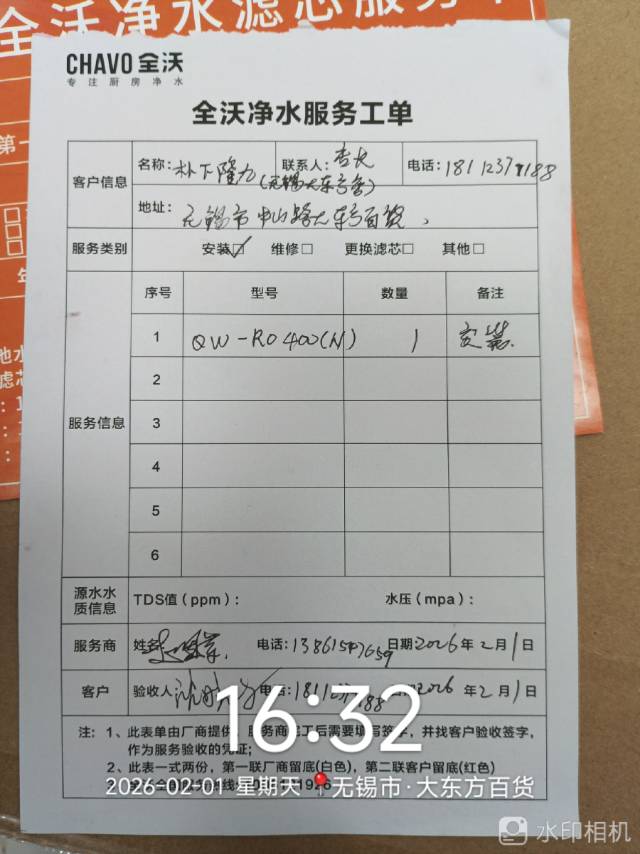 全沃净水滤芯服务
CHAVO 全沃
专注厨房净水
全沃净水服务工单
客户信息
名称: 朴下隆力 (无锡大东方店) 联系人: 店长 电话:
地址: 无锡市中山路大东方百货
服务类别 安装☑ 维修□ 更换滤芯□ 其他□
服务信息
序号 型号 数量 备注
1 QW-RO400(N) 1 安装
2
3
4
5
6
源水水质信息 TDS值(ppm): 水压(mpa):
服务商 姓名 电话: 日期2026年2月1日
客户 验收人 电话: 2026年2月1日
16:32
注: 1、此表单由厂商提供,服务商完工后需要填写签字,并找客户验收签字,
作为服务验收的凭证;
2、此表一式两份,第一联厂商留底(白色),第二联客户留底(红色)
2026-02-01 星期天 无锡市·大东方百货
水印相机